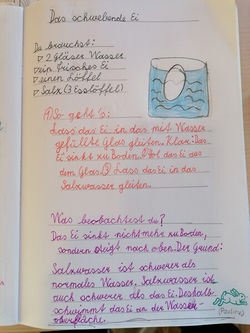 Das schwebende Ei
Du brauchst:
→ 2 Gläser Wasser
→ ein frisches Ei
→ einen Löffel
→ Salz (3 Esslöffel)
So geht's:
Lass das Ei in das mit Wasser
gefüllte Glas gleiten. Klar: Das
Ei sinkt zu Boden. Hol das Ei aus
dem Glas. Lass das Ei in das
Salzwasser gleiten.
Was beobachtest du?
Das Ei sinkt nicht mehr zu Boden,
sondern steigt nach oben. Der Grund:
Salzwasser ist schwerer als
normales Wasser. Salzwasser ist
auch schwerer als das Ei. Deshalb
schwimmt das Ei an der Wasser-
oberfläche.